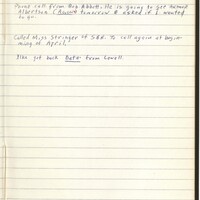 Phone call from Roy Abbott. He is going to get
Albertson tomorrow & asked if I wanted
to go.
Called Miss Stringer of S&H. To call again at begin-
ning of April.
Also got back Bets from Lowell.